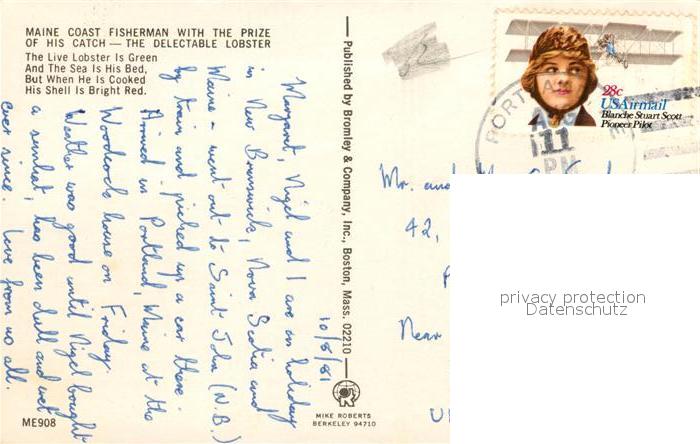 MAINE COAST FISHERMAN WITH THE PRIZE
OF HIS CATCH — THE DELECTABLE LOBSTER
The Live Lobster Is Green
And The Sea Is His Bed,
But When He Is Cooked
His Shell Is Bright Red.
10/8/81
Margaret, Nigel and I are on holiday
in New Brunswick, Nova Scotia and
Maine - went out to Saint John (N.B.)
by train and picked up a car there.
Arrived in Portland, Maine at the
Woodcock house on Friday.
Weather was good until Nigel bought
a sunhat, has been dull and wet
ever since. Love from us all.
ME908
Published by Bromley & Company, Inc., Boston, Mass. 02210
MIKE ROBERTS
BERKELEY 94710
28c
USAirmail
Blanche Stuart Scott
Pioneer Pilot
PORTLA
AUG
11
PM
Mr. and
42,
Near
privacy protection
Datenschutz